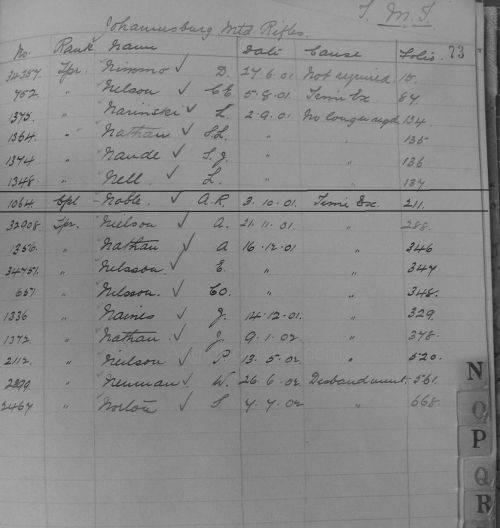 J. M. J.
Johannesburg Mtd Rifles.
No. Rank Name Date Cause Folio. 73
24257 Tpr. Nimmo ✓ D. 27.6.01 Not required 15.
752 " Nelson ✓ C E. 5.8.01. Time Ex 67
1375. " Narinski ✓ L. 2.9.01 No longer reqd 134
1364. " Nathan ✓ S L. " " 135
1374 " Naude ✓ S. J. " " 136
1348. " Nell. ✓ L. " " 137
1064 Cpl Noble. ✓ A. R 3.10.01. Time Exe. 211.
32908. Tpr. Nielson ✓ A. 21.11.01 " 288.
1356. " Nathan ✓ A 16.12.01 " 346
34751. " Nelsson ✓ E. " " 347
651 " Nelsson. ✓ C O. " " 348.
1336 " Naines ✓ J. 14.12.01. " 329
1372. " Nathan. ✓ J. 9.1.02. " 378.
2112. " Neilson ✓ P 13.5.02 " 520.
2899 " Neuman ✓ W. 26.6.02 Disbandment. 561.
2467 " Norton ✓ S 4.7.02 " 668.
N
O
P
Q
R